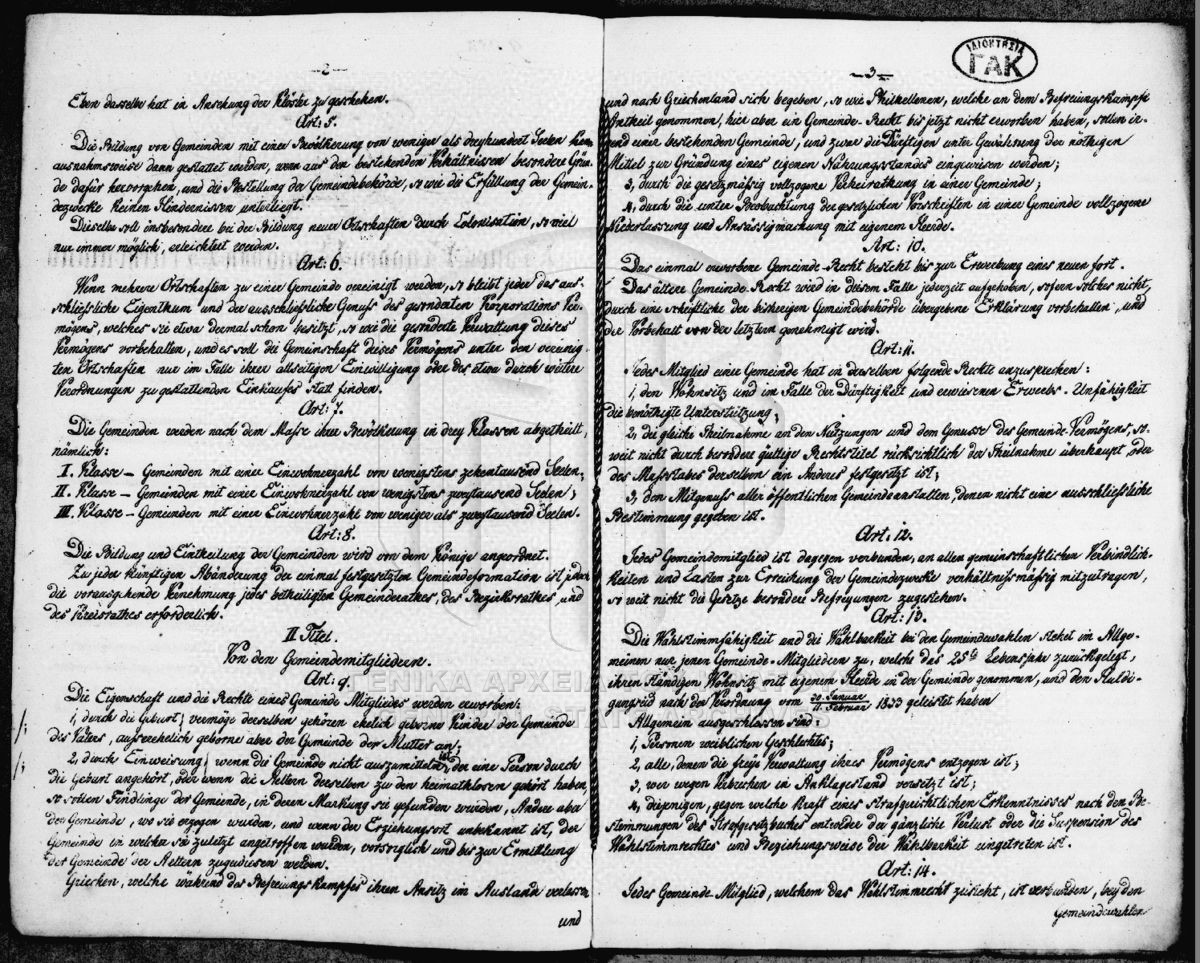 — 2 —
Eben dasselbe hat in Ansehung der Klöster zu geschehen.
Art: 5.
Die Bildung von Gemeinden mit einer Bevölkerung von weniger als dreyhundert Seelen kann
ausnahmsweise dann gestattet werden, wenn aus den bestehenden Verhältnissen besondere Grün-
de dafür hervorgehen, und die Bestellung der Gemeindebehörde, so wie die Erfüllung der Gemein-
dezwecke keinen Hindernissen unterliegt.
Dieselbe soll insbesondere bei der Bildung neuer Ortschaften durch Colonisation, so viel
nur immer möglich, erleichtert werden.
Art: 6.
Wenn mehrere Ortschaften zu einer Gemeinde vereinigt werden, so bleibt jeder das aus-
schließliche Eigenthum und der ausschließliche Genuß des gesonderten Korporations Ver-
mögens, welches sie etwa dermal schon besitzt, so wie die gesonderte Verwaltung dieses
Vermögens vorbehalten, und es soll die Gemeinschaft dieses Vermögens unter den vereinig-
ten Ortschaften nur im Falle ihrer allseitigen Einwilligung oder des etwa durch weitere
Verordnungen zu gestattenden Einkaufes statt finden.
Art: 7.
Die Gemeinden werden nach dem Maße ihrer Bevölkerung in drey Klassen abgetheilt,
nämlich:
I. Klasse – Gemeinden mit einer Einwohnerzahl von wenigstens zehentausend Seelen;
II. Klasse – Gemeinden mit einer Einwohnerzahl von wenigstens zweytausend Seelen;
III. Klasse – Gemeinden mit einer Einwohnerzahl von weniger als zweytausend Seelen.
Art: 8.
Die Bildung und Eintheilung der Gemeinden wird von dem Könige angeordnet.
Zu jeder künftigen Abänderung der einmal festgesetzten Gemeindeformation ist jedoch
die vorausgehende Vernehmung jedes betheiligten Gemeinderathes, des Bezirksrathes, und
des Kreisrathes erforderlich.
II Titel.
Von den Gemeindemitgliedern.
Art: 9.
Die Eigenschaft und die Rechte eines Gemeinde Mitgliedes werden erworben:
1, durch die Geburt; vermöge derselben gehören ehelich geborne Kinder der Gemeinde
des Vaters, außerehelich geborne aber der Gemeinde der Mutter an;
2, durch Einweisung; wenn die Gemeinde nicht auszumitteln ist, der eine Person durch
die Geburt angehört, oder wenn die Aeltern derselben zu den heimathlosen gehört haben,
so sollen Findlinge der Gemeinde, in deren Markung sie gefunden wurden, Andere aber
der Gemeinde, wo sie erzogen wurden, und wenn der Erziehungsort unbekannt ist, der
Gemeinde in welcher sie zuletzt angetroffen wurden, vorsorglich und bis zur Ermittlung
der Gemeinde der Aeltern zugewiesen werden.
Griechen, welche während des Befreiungskampfes ihren Ansitz im Auslande verlassen
und
— 3 —
ΙΔΙΟΚΤΗΣΙΑ
ΓΑΚ
und nach Griechenland sich begeben, so wie Philhellenen, welche an dem Befreiungskampfe
Antheil genommen, hier aber ein Gemeinde-Recht bis jetzt nicht erworben haben, sollen ir-
gend einer bestehenden Gemeinde, und zwar die Dürftigen unter Gewährung der nöthigen
Mittel zur Gründung eines eigenen Nahrungsstandes eingewiesen werden;
3, durch die gesetzmäßig vollzogene Verheirathung in einer Gemeinde;
4, durch die unter Beobachtung der gesetzlichen Vorschriften in einer Gemeinde vollzogene
Niederlassung und Ansässigmachung mit eigenem Heerde.
Art: 10.
Das einmal erworbene Gemeinde-Recht besteht bis zur Erwerbung eines neuen fort.
Das ältere Gemeinde-Recht wird in diesem Falle jederzeit aufgehoben, sofern solches nicht
durch eine schriftliche der bisherigen Gemeindebehörde übergebene Erklärung vorbehalten, und
der Vorbehalt von der letztern genehmigt wird.
Art: 11.
Jedes Mitglied einer Gemeinde hat in derselben folgende Rechte anzusprechen:
1, den Wohnsitz und im Falle der Dürftigkeit und erwiesenen Erwerbs-Unfähigkeit
die benöthigte Unterstützung;
2, die gleiche Theilnahme an den Nutzungen und dem Genusse des Gemeinde-Vermögens, so-
weit nicht durch besondere gültige Rechtstitel rücksichtlich der Theilnahme überhaupt, oder
des Maßstabes derselben ein Anderes festgesetzt ist;
3, den Mitgenuß aller öffentlichen Gemeindeanstalten, denen nicht eine ausschließliche
Bestimmung gegeben ist.
Art: 12.
Jedes Gemeindemitglied ist dagegen verbunden, an allen gemeinschaftlichen Verbindlich-
keiten und Lasten zur Erreichung der Gemeindezwecke verhältnißmäßig mitzutragen,
so weit nicht die Gesetze besondere Befreyungen zugestehen.
Art: 13.
Die Wahlstimmfähigkeit und die Wahlbarkeit bei den Gemeindewahlen stehet im Allge-
meinen nur jenen Gemeinde-Mitgliedern zu, welche das 25te Lebensjahr zurückgelegt,
ihren ständigen Wohnsitz mit eigenem Heerde in der Gemeinde genommen, und den Huldi-
gungseid nach der Verordnung vom 30. Januar / 11. Februar 1833 geleistet haben
Allgemein ausgeschlossen sind:
1, Personen weiblichen Geschlechtes;
2, alle, denen die freye Verwaltung ihres Vermögens entzogen ist;
3, wer wegen Verbrechen in Anklagestand versetzt ist;
4, diejenigen, gegen welche kraft eines strafgerichtlichen Erkenntnisses nach den Be-
stimmungen des Strafgesetzbuches entweder der gänzliche Verlust oder die Suspension des
Wahlstimmrechtes und Beziehungsweise der Wahlbarkeit eingetreten ist.
Art: 14.
Jedes Gemeinde-Mitglied, welchem das Wahlstimmrecht zusteht, ist verbunden, bey den
Gemeindewahlen